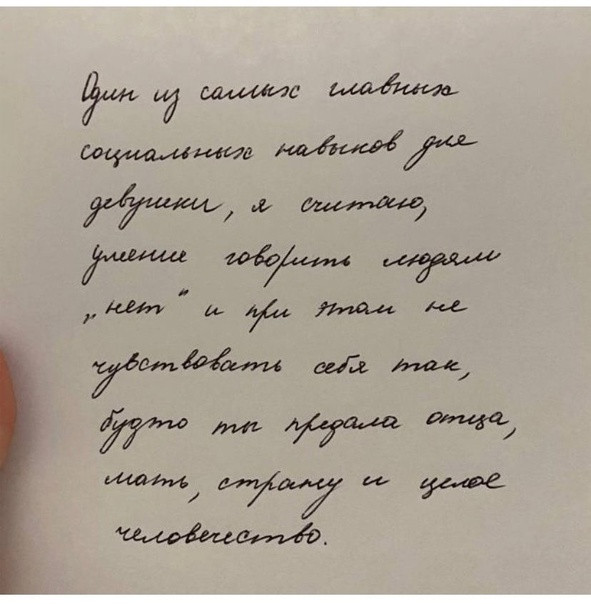 Один из самых главных
социальных навыков для
девушки, я считаю,
умение говорить людям
„нет“ и при этом не
чувствовать себя так,
будто ты предала отца,
мать, страну и целое
человечество.